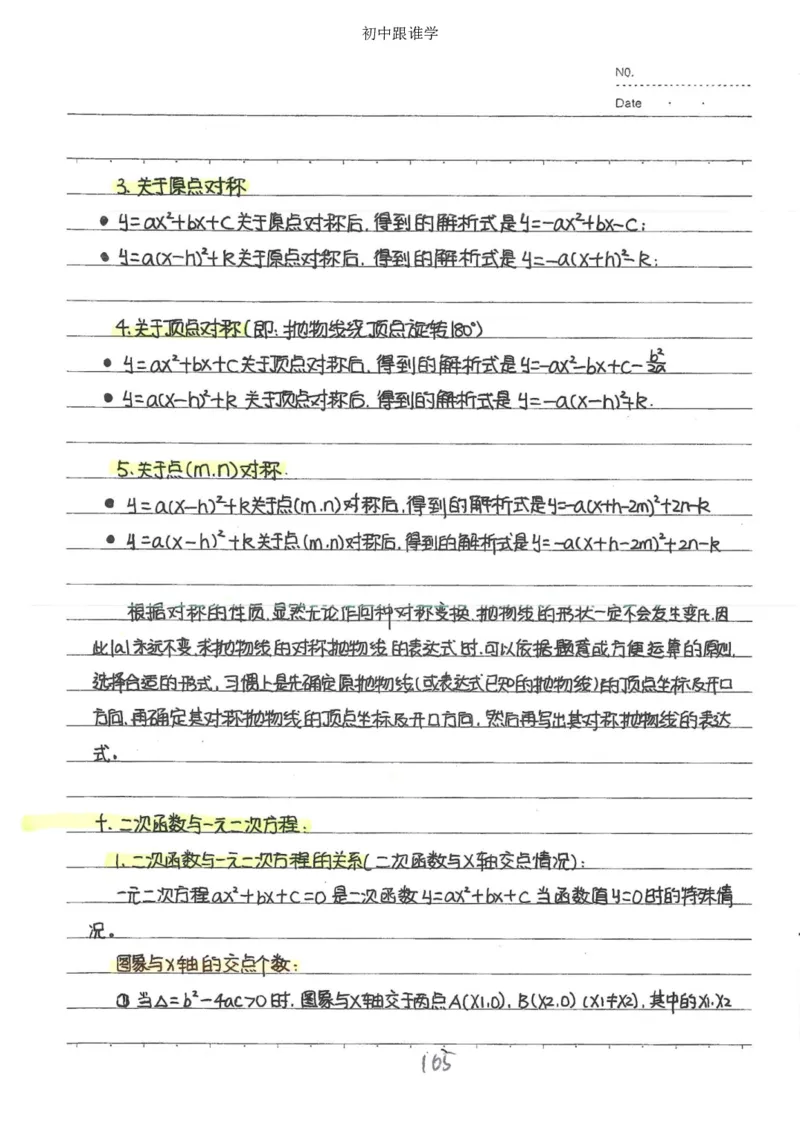 初中跟谁学
NO.
Date
3. 关于原点对称
• y=ax²+bx+c关于原点对称后, 得到的解析式是y=-ax²+bx-c;
• y=a(x-h)²+k关于原点对称后, 得到的解析式是y=-a(x+h)²-k;
4. 关于顶点对称(即: 抛物线绕顶点旋转180°)
• y=ax²+bx+c关于顶点对称后, 得到的解析式是y=-ax²-bx+c-b²/2a
• y=a(x-h)²+k 关于顶点对称后, 得到的解析式是 y=-a(x-h)²+k.
5. 关于点(m.n)对称.
• y=a(x-h)²+k关于点(m.n)对称后, 得到的解析式是y=-a(x+h-2m)²+2n-k
• y=a(x-h)²+k关于点(m.n)对称后, 得到的解析式是y=-a(x+h-2m)²+2n-k
根据对称的性质, 显然无论作何种对称变换, 抛物线的形状一定不会发生变化, 因
此|a|永远不变, 求抛物线的对称抛物线的表达式时, 可以依据题意或方便运算的原则,
选择合适的形式, 习惯上是先确定原抛物线(或表达式已知的抛物线)的顶点坐标及开口
方向, 再确定其对称抛物线的顶点坐标及开口方向, 然后再写出其对称抛物线的表达
式。
十. 二次函数与一元二次方程:
1. 二次函数与一元二次方程的关系(二次函数与x轴交点情况):
一元二次方程ax²+bx+c=0是二次函数y=ax²+bx+c当函数值y=0时的特殊情
况。
图象与x轴的交点个数:
① 当△=b²-4ac>0时, 图象与x轴交于两点A(x1,0), B(x2,0) (x1≠x2), 其中的x1.x2
165